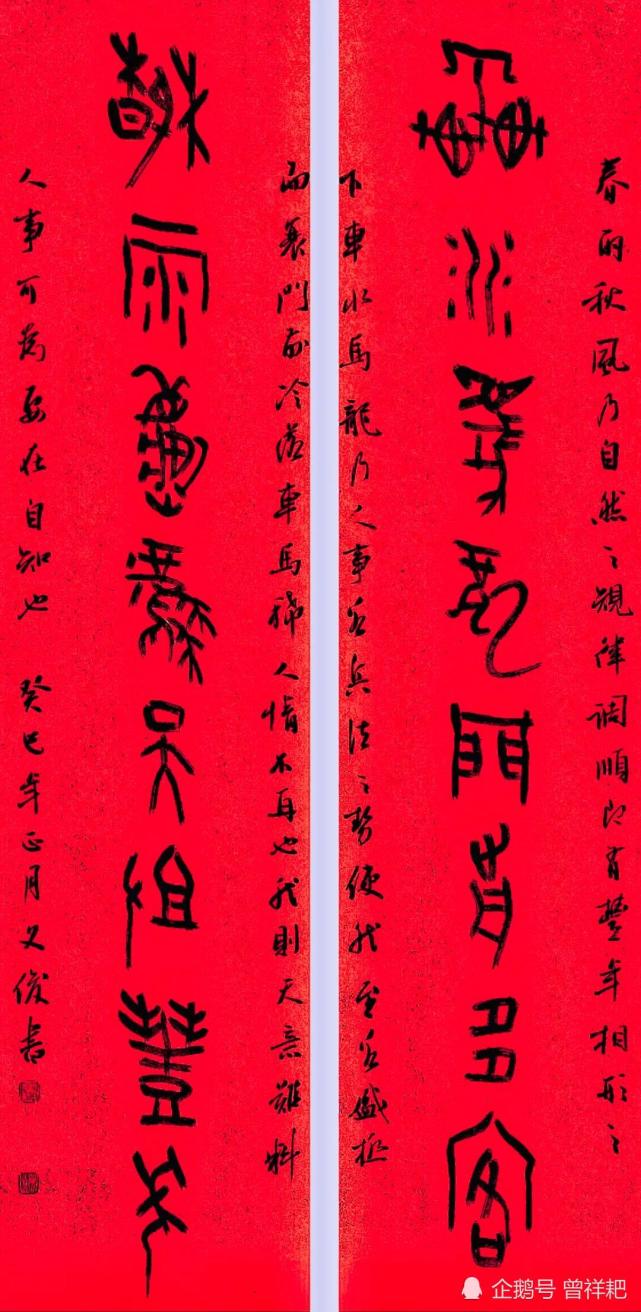 春雨秋風乃自然之規律調順即有豐年相形之
車水馬龍門有多客
下車水馬龍乃人事兵法之勢使然至盛極
而衰門前冷落車馬稀人情不再也然則天意難料
雨豐年
人事可為要在自知也 癸巳年正月文俊書
企鹅号 曾祥耙